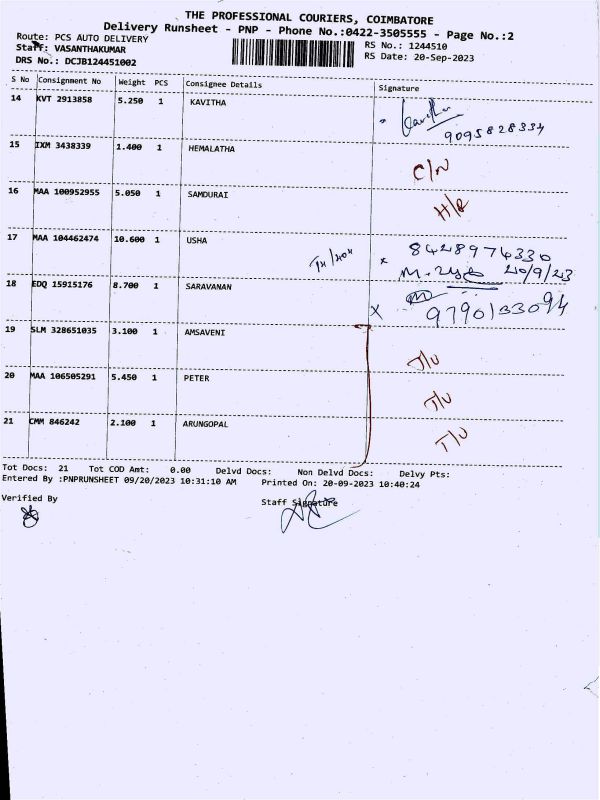 THE PROFESSIONAL COURIERS, COIMBATORE
Delivery Runsheet - PNP - Phone No.:0422-3505555 - Page No.:2
Route: PCS AUTO DELIVERY
RS No.: 1244510
Staff: VASANTHAKUMAR
RS Date: 20-Sep-2023
DRS No.: DCJB124451002
S No Consignment No Weight PCS Consignee Details Signature
14 KVT 2913858 5.250 1 KAVITHA
9095828334
15 IXM 3438339 1.400 1 HEMALATHA C/N
16 MAA 100952955 5.050 1 SAMDURAI H/R
17 MAA 104462474 10.600 1 USHA x 8428974330
20/9/23
18 EDQ 15915176 8.700 1 SARAVANAN
X 9790133094
19 SLM 328651035 3.100 1 AMSAVENI T/U
20 MAA 106505291 5.450 1 PETER T/U
21 CMM 846242 2.100 1 ARUNGOPAL T/U
Tot Docs: 21 Tot COD Amt: 0.00 Delvd Docs: Non Delvd Docs: Delvy Pts:
Entered By :PNPRUNSHEET 09/20/2023 10:31:10 AM Printed On: 20-09-2023 10:40:24
Verified By Staff Signature